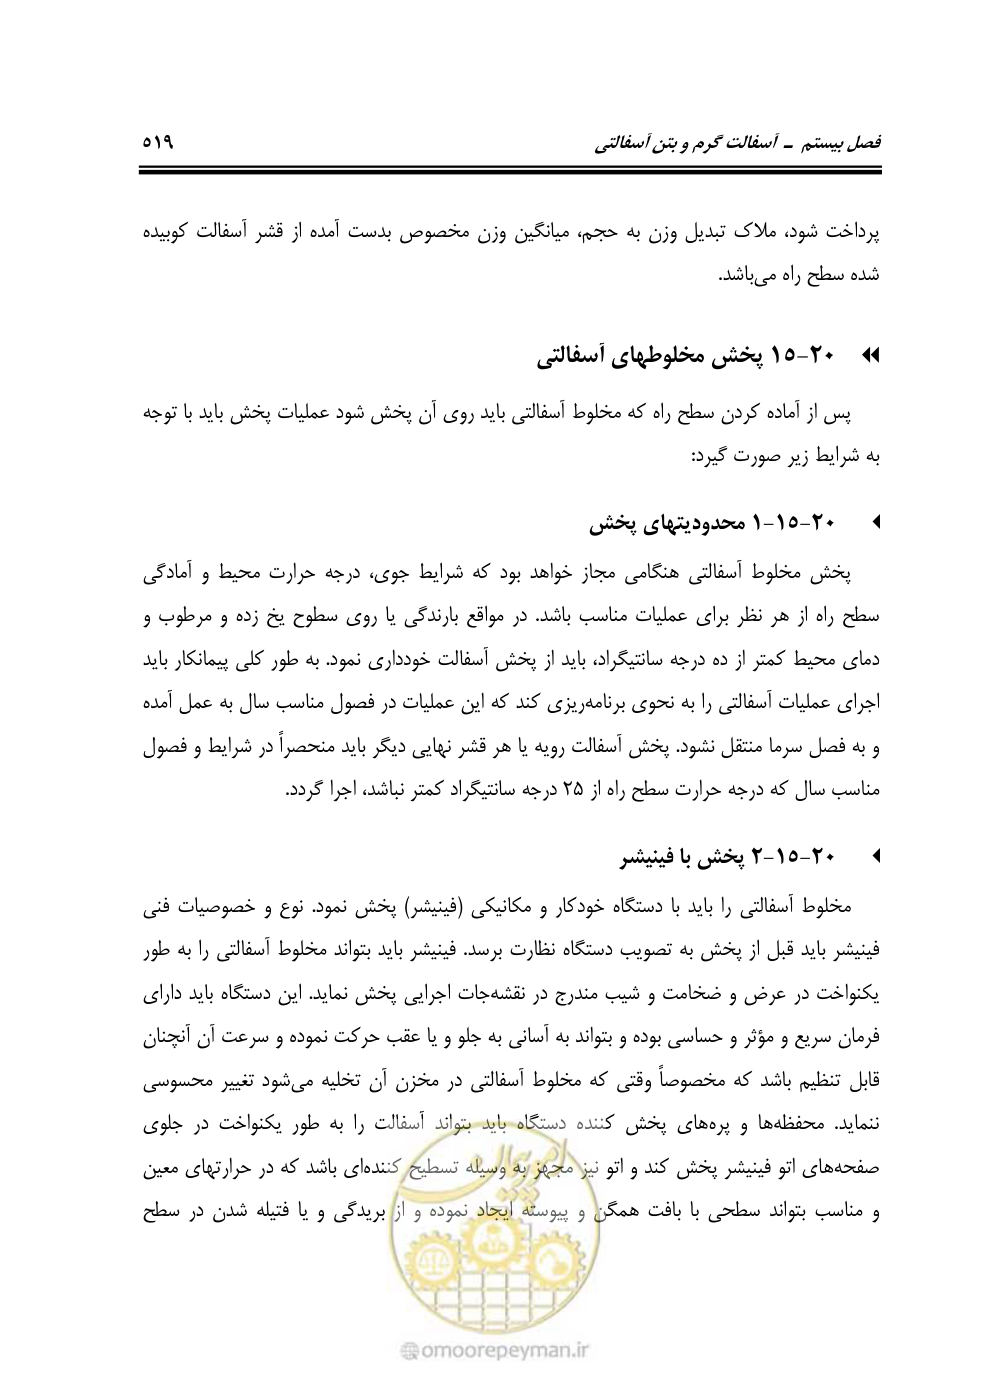 فصل بیستم ـ آسفالت گرم و بتن آسفالتی ۵۱۹
پرداخت شود، ملاک تبدیل وزن به حجم، میانگین وزن مخصوص بدست آمده از قشر آسفالت کوبیده
شده سطح راه می‌باشد.
۲۰-۱۵ پخش مخلوطهای آسفالتی
پس از آماده کردن سطح راه که مخلوط آسفالتی باید روی آن پخش شود عملیات پخش باید با توجه
به شرایط زیر صورت گیرد:
۲۰-۱۵-۱ محدودیتهای پخش
پخش مخلوط آسفالتی هنگامی مجاز خواهد بود که شرایط جوی، درجه حرارت محیط و آمادگی
سطح راه از هر نظر برای عملیات مناسب باشد. در مواقع بارندگی یا روی سطوح یخ زده و مرطوب و
دمای محیط کمتر از ده درجه سانتیگراد، باید از پخش آسفالت خودداری نمود. به طور کلی پیمانکار باید
اجرای عملیات آسفالتی را به نحوی برنامه‌ریزی کند که این عملیات در فصول مناسب سال به عمل آمده
و به فصل سرما منتقل نشود. پخش آسفالت رویه یا هر قشر نهایی دیگر باید منحصراً در شرایط و فصول
مناسب سال که درجه حرارت سطح راه از ۲۵ درجه سانتیگراد کمتر نباشد، اجرا گردد.
۲۰-۱۵-۲ پخش با فینیشر
مخلوط آسفالتی را باید با دستگاه خودکار و مکانیکی (فینیشر) پخش نمود. نوع و خصوصیات فنی
فینیشر باید قبل از پخش به تصویب دستگاه نظارت برسد. فینیشر باید بتواند مخلوط آسفالتی را به طور
یکنواخت در عرض و ضخامت و شیب مندرج در نقشه‌جات اجرایی پخش نماید. این دستگاه باید دارای
فرمان سریع و مؤثر و حساسی بوده و بتواند به آسانی به جلو و یا عقب حرکت نموده و سرعت آن آنچنان
قابل تنظیم باشد که مخصوصاً وقتی که مخلوط آسفالتی در مخزن آن تخلیه می‌شود تغییر محسوسی
ننماید. محفظه‌ها و پره‌های پخش کننده دستگاه باید بتواند آسفالت را به طور یکنواخت در جلوی
صفحه‌های اتو فینیشر پخش کند و اتو نیز مجهز به وسیله تسطیح کننده‌ای باشد که در حرارتهای معین
و مناسب بتواند سطحی با بافت همگن و پیوسته ایجاد نموده و از بریدگی و یا فتیله شدن در سطح
امور پیمان
omoorepeyman.ir